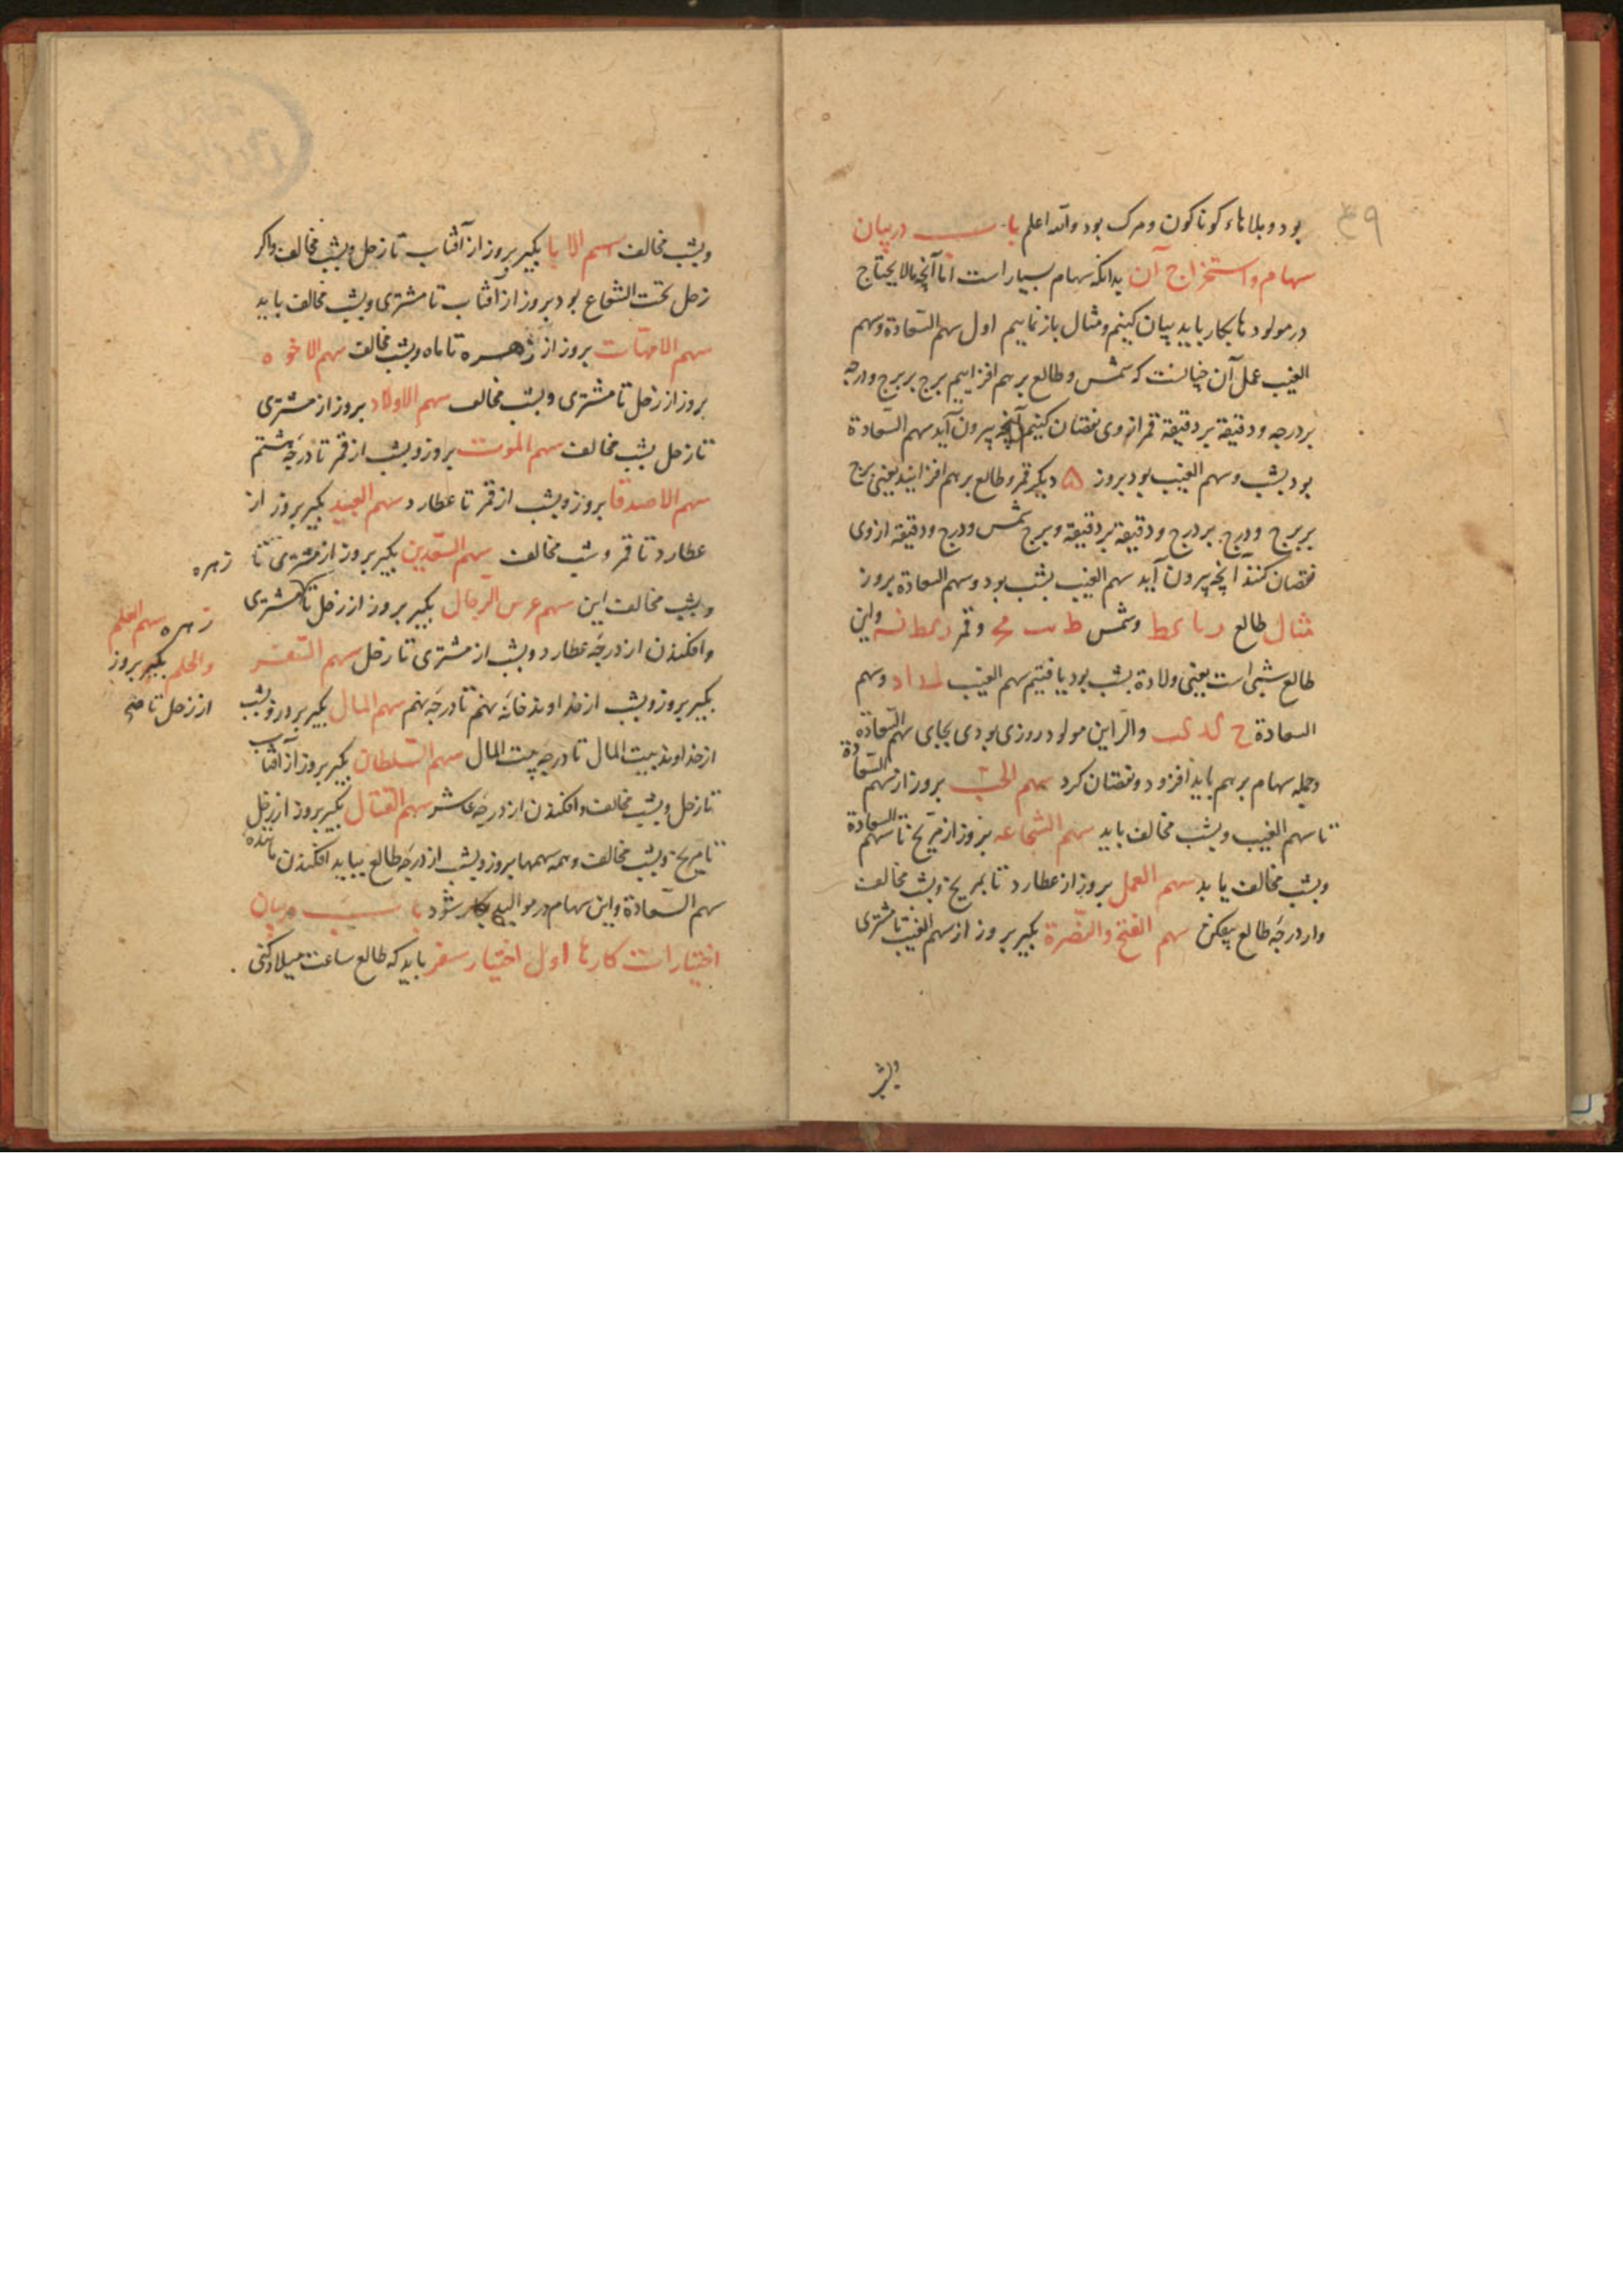 ۴۹
بود و بلاهاء کوناکون و مرک بود والله اعلم باب در بیان
سهام و استخراج آن بدانکه سهام بسیار است اما آنچه مالایحتاج
در مولودها بکار باید بیان کنیم و مثال باز نماییم اول سهم السعادة وسهم
الغیب عمل آن چنانست که شمس و طالع بر هم افزاییم برج بر برج و درجه
بر درجه و دقیقة بر دقیقة قمر از وی نقصان کنیم آنچه بیرون آید سهم السعادة
بود بشب و سهم الغیب بود بروز ۵ دیکر قمر و طالع بر هم افزایند یعنی برج
بر برج و درج بر درج و دقیقة بر دقیقة و برج شمس و درج و دقیقة از وی
نقصان کنند آنچه بیرون آید سهم الغیب بشب بود و سهم السعادة بروز
مثال طالع و شمس و قمر و این
طالع شبی است یعنی ولادة بشب بود یافتیم سهم الغیب وسهم
السعادة والر این مولود روزی بودی بجای سهم السعادة
وجمله سهام بر هم باید افزود و نقصان کرد سهم الحب بروز از سهم السعادة
تا سهم الغیب و بشب مخالف باید سهم الشجاعه بروز از مریخ تا سهم السعادة
وبشب مخالف باید سهم العمل بروز از عطارد تا بمریخ و بشب مخالف
واز درجه طالع بیفکن سهم الفتح والنصرة بکیر بروز از سهم الغیب تا مشتری
وبشب
وبشب مخالف اسهم الابا بکیر بروز از آفتاب تا زحل و بشب مخالف واکر
زحل تحت الشعاع بود بروز از آفتاب تا مشتری و بشب مخالف باید
سهم الامهات بروز از زهره تا ماه و بشب مخالف سهم الاخوه
بروز از زحل تا مشتری و بشب مخالف سهم الاولاد بروز از مشتری
تا زحل بشب مخالف سهم الموت بروز و بشب از قمر تا درجه هشتم
سهم الاصدقا بروز و بشب از قمر تا عطارد سهم العبید بکیر بروز از
عطارد تا قمر و شب مخالف سهم السعدین بکیر بروز از مشتری تا زهره
وبشب مخالف این سهم عرس الرجال بکیر بروز از زحل تا مشتری
زهره سهم العلم
والحلم بکیر بروز
از زحل تا
وافکندن از درجه عطارد و بشب از مشتری تا زحل سهم السفر
بکیر بروز و بشب از خداوند خانه نهم تا درجه نهم سهم المال بکیر بروز و بشب
از خداوند بیت المال تا درجه بیت المال سهم السلطان بکیر بروز از آفتاب
تا زحل و بشب مخالف و افکندن از درجه عاشر سهم القتال بکیر بروز از زحل
تا مریخ و بشب مخالف و همه سهمها بروز و بشب از درجه طالع بباید افکندن مانند
سهم السعادة و این سهام در موالید بکار شود باب در بیان
اختیارات کارها اول اختیار سفر باید که طالع ساعت میلاد کنی